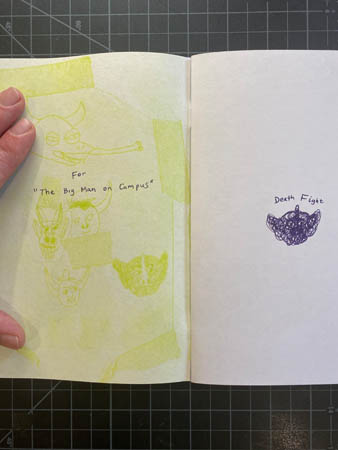 For
"The Big Man on Campus"
Death Fight